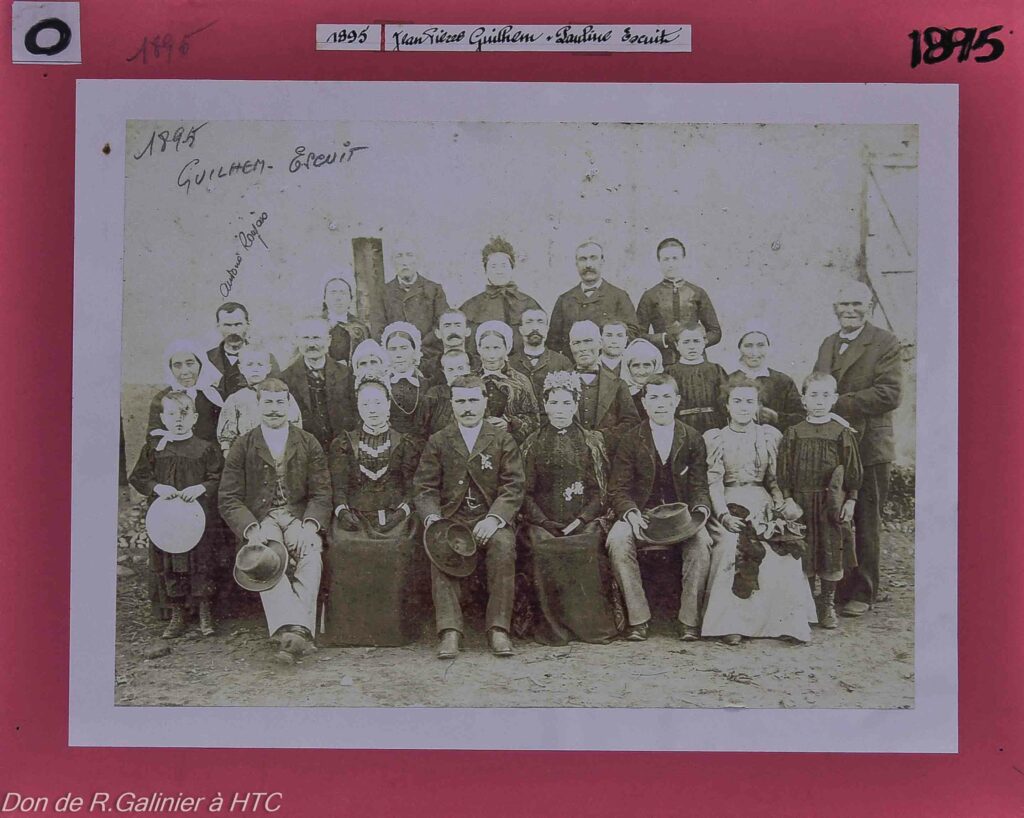 O
1895
1895 Jean Pierre Guilhem - Pauline Escuit
1895
1895
GUILHEM - ESCUIT
Don de R.Galinier à HTC